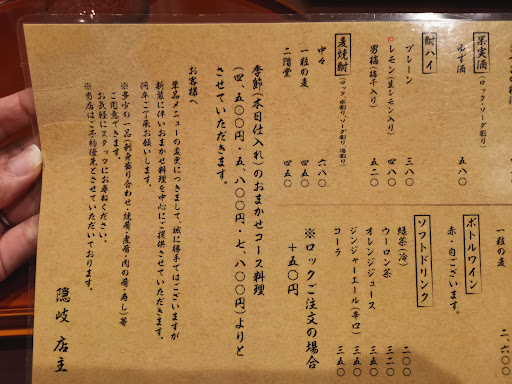 一粒の麦
二、六〇〇
果実酒(ロック・ソーダ割り)
ゆず酒 五八〇
酎ハイ
プレーン 三八〇
レモン(生レモン入り) 四八〇
男梅(梅干入り) 五二〇
麦焼酎(ロック、水割り、ソーダ割り、湯割り)
中々 六八〇
一粒の麦 四五〇
二階堂 四五〇
ボトルワイン
赤・白ございます。
ソフトドリンク
緑茶(冷) 二〇〇
ウーロン茶 三二〇
オレンジジュース 三五〇
ジンジャーエール(辛口) 三五〇
コーラ 三五〇
※ロックご注文の場合
+五〇円
季節(本日仕入れ)のおまかせコース料理
(四、五〇〇円・五、八〇〇円・七、八〇〇円)よりと
させていただきます。
お客様へ
単品メニューの変更につきまして、誠に勝手ではございますが
新装に伴いおまかせ料理を中心にご提供させていただきます。
何卒ご了承お願いします。
※多少の一品(刺身盛り合わせ・焼肴・煮肴・肉の肴・寿し)等
ご用意できます。
お気軽にスタッフにお尋ねください。
※当店はご予約優先とさせていただいております。
隠岐 店主